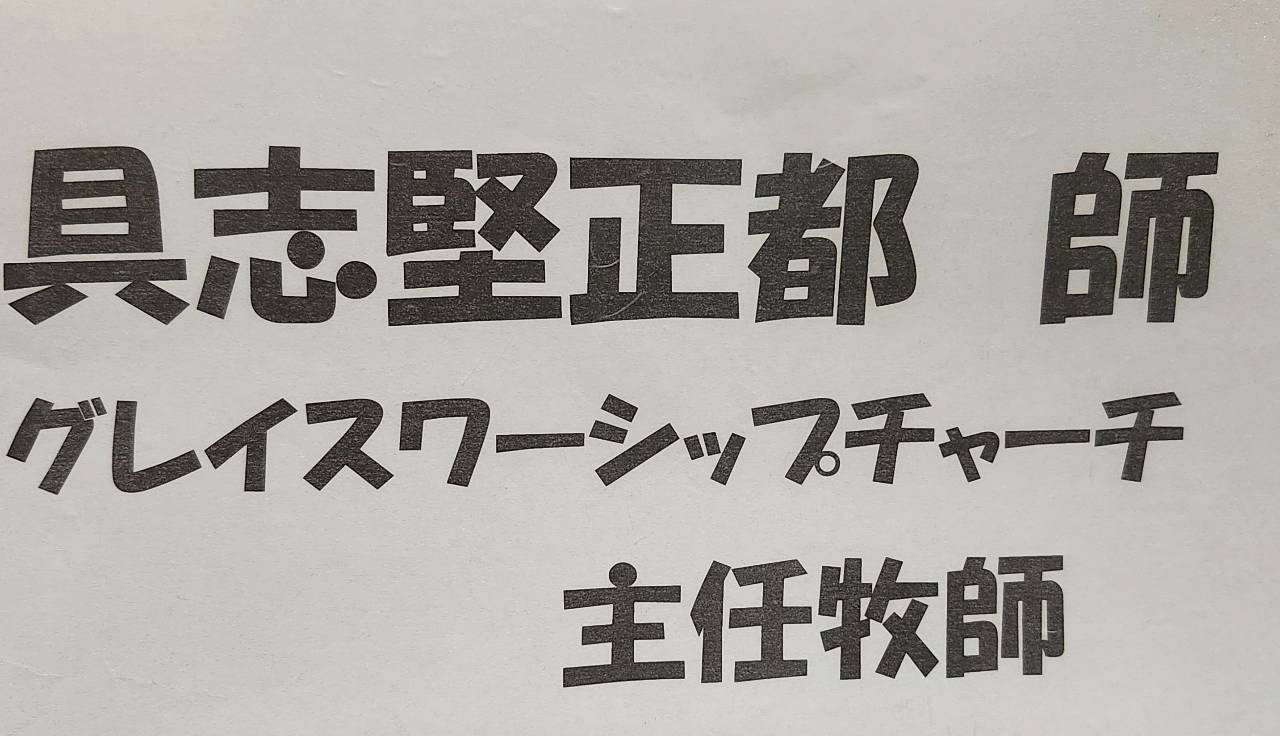 具志堅正都　師
グレイスワーシップチャーチ
主任牧師